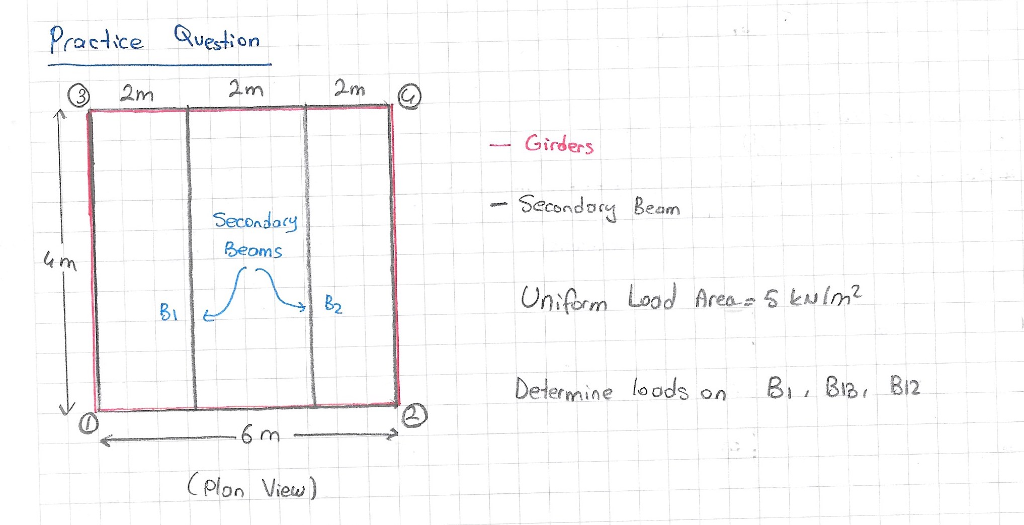 Practice Question
③ 2m 2m 2m ④
— Girders
— Secondary Beam
Secondary
Beams
4m
B1 B2
Uniform Load Area = 5 kN/m²
Determine loads on B1, B13, B12
① ②
6m
(Plan View)